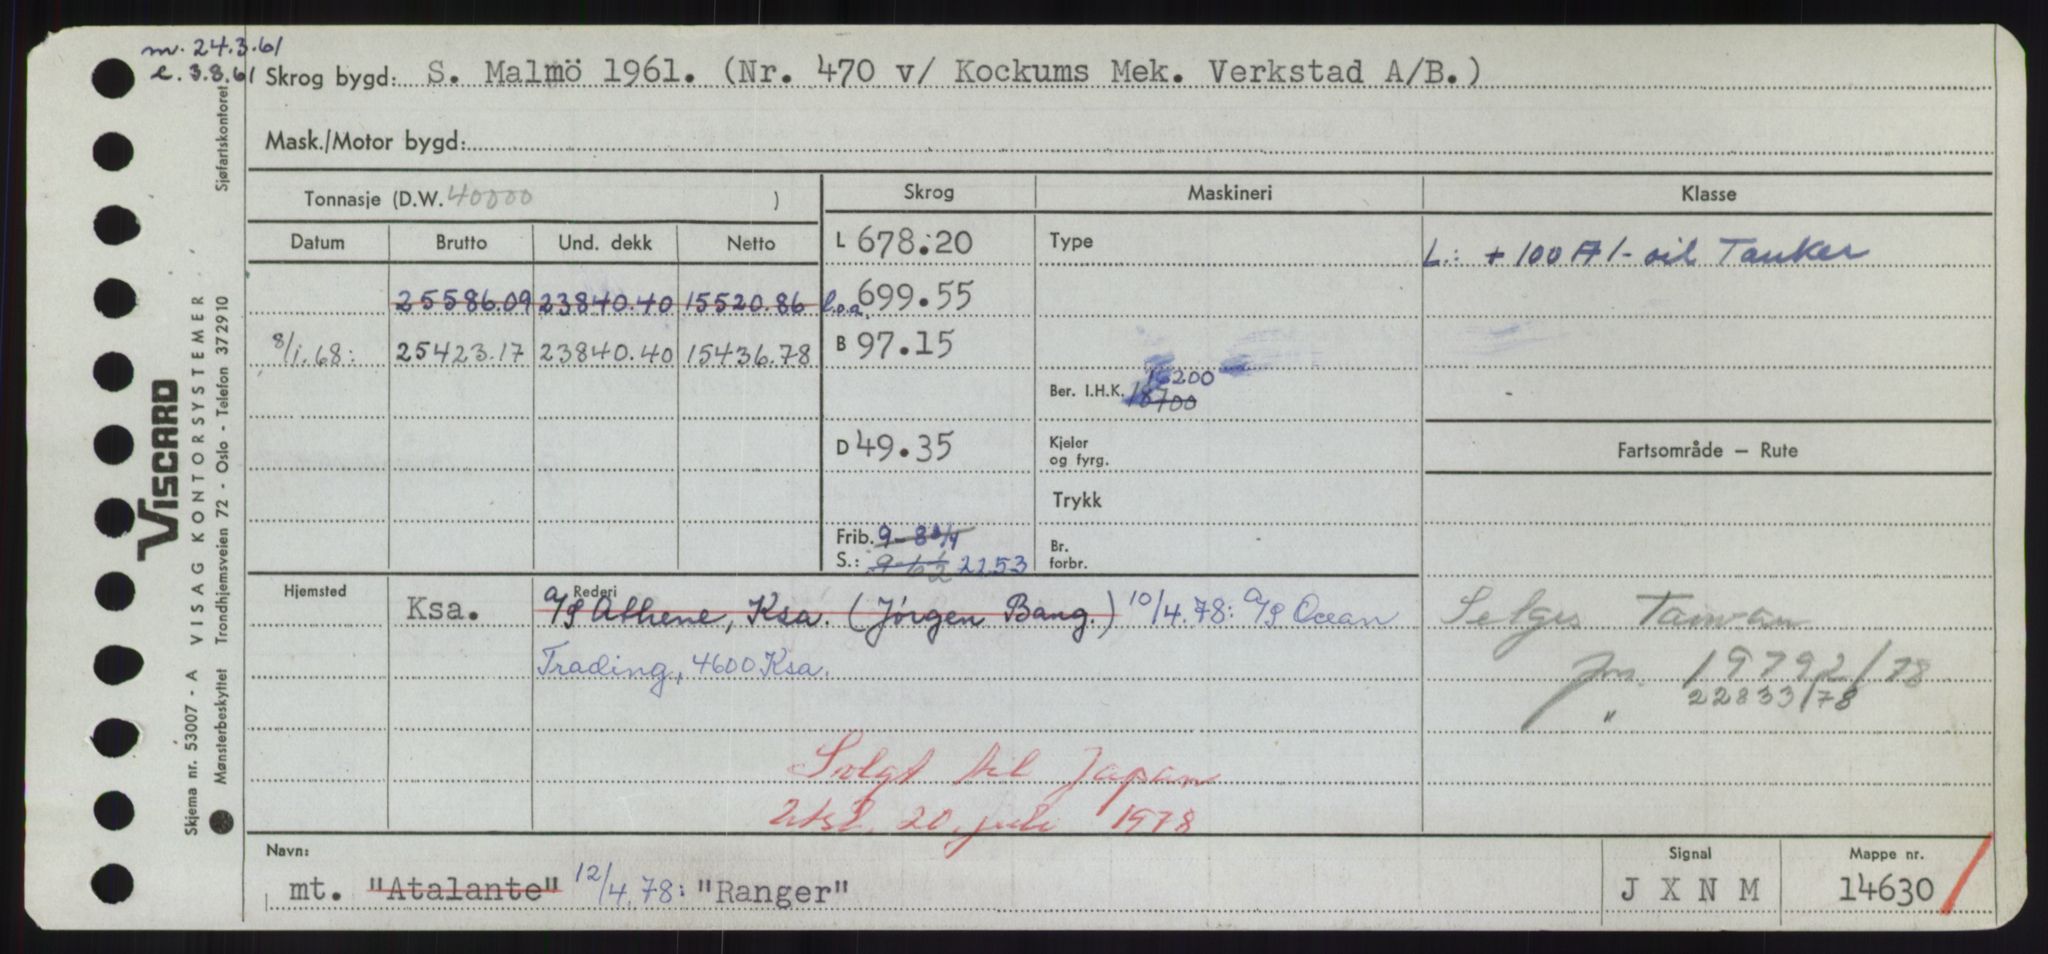 m. 24.3.61
e. 3.8.61
Skrog bygd: S. Malmö 1961. (Nr. 470 v/ Kockums Mek. Verkstad A/B.)
Mask./Motor bygd:
Tonnasje (D.W. 40000 )
Skrog Maskineri Klasse
Datum Brutto Und. dekk Netto
L 678.20 Type L.: + 100 A 1 - oil Tanker
25586.09 23840.40 15520.86 l.o.a. 699.55
8/1.68: 25423.17 23840.40 15436.78 B 97.15
16200
Ber. I.H.K. 18700
D 49.35 Kjeler og fyrg. Fartsområde — Rute
Trykk
Frib. 9-8 3/4 Br. forbr.
S.: 9-6 1/2 2253
Hjemsted Rederi
Ksa. A/S Athene, Ksa. (Jörgen Bang.) 10/4.78: A/S Ocean
Trading, 4600 Ksa.
Selges Taiwan
Jnr. 19792/78
" 22833/78
Solgt til Japan
Utsl. 20. juli 1978
Navn: Signal Mappe nr.
mt. "Atalante" 12/4.78: "Ranger" J X N M 14630
Sjøfartskontoret
VISCARD
VISAG KONTORSYSTEMER
Trondhjemsveien 72 - Oslo - Telefon 372910
Skjema nr. 53007 - A
Mønsterbeskyttet